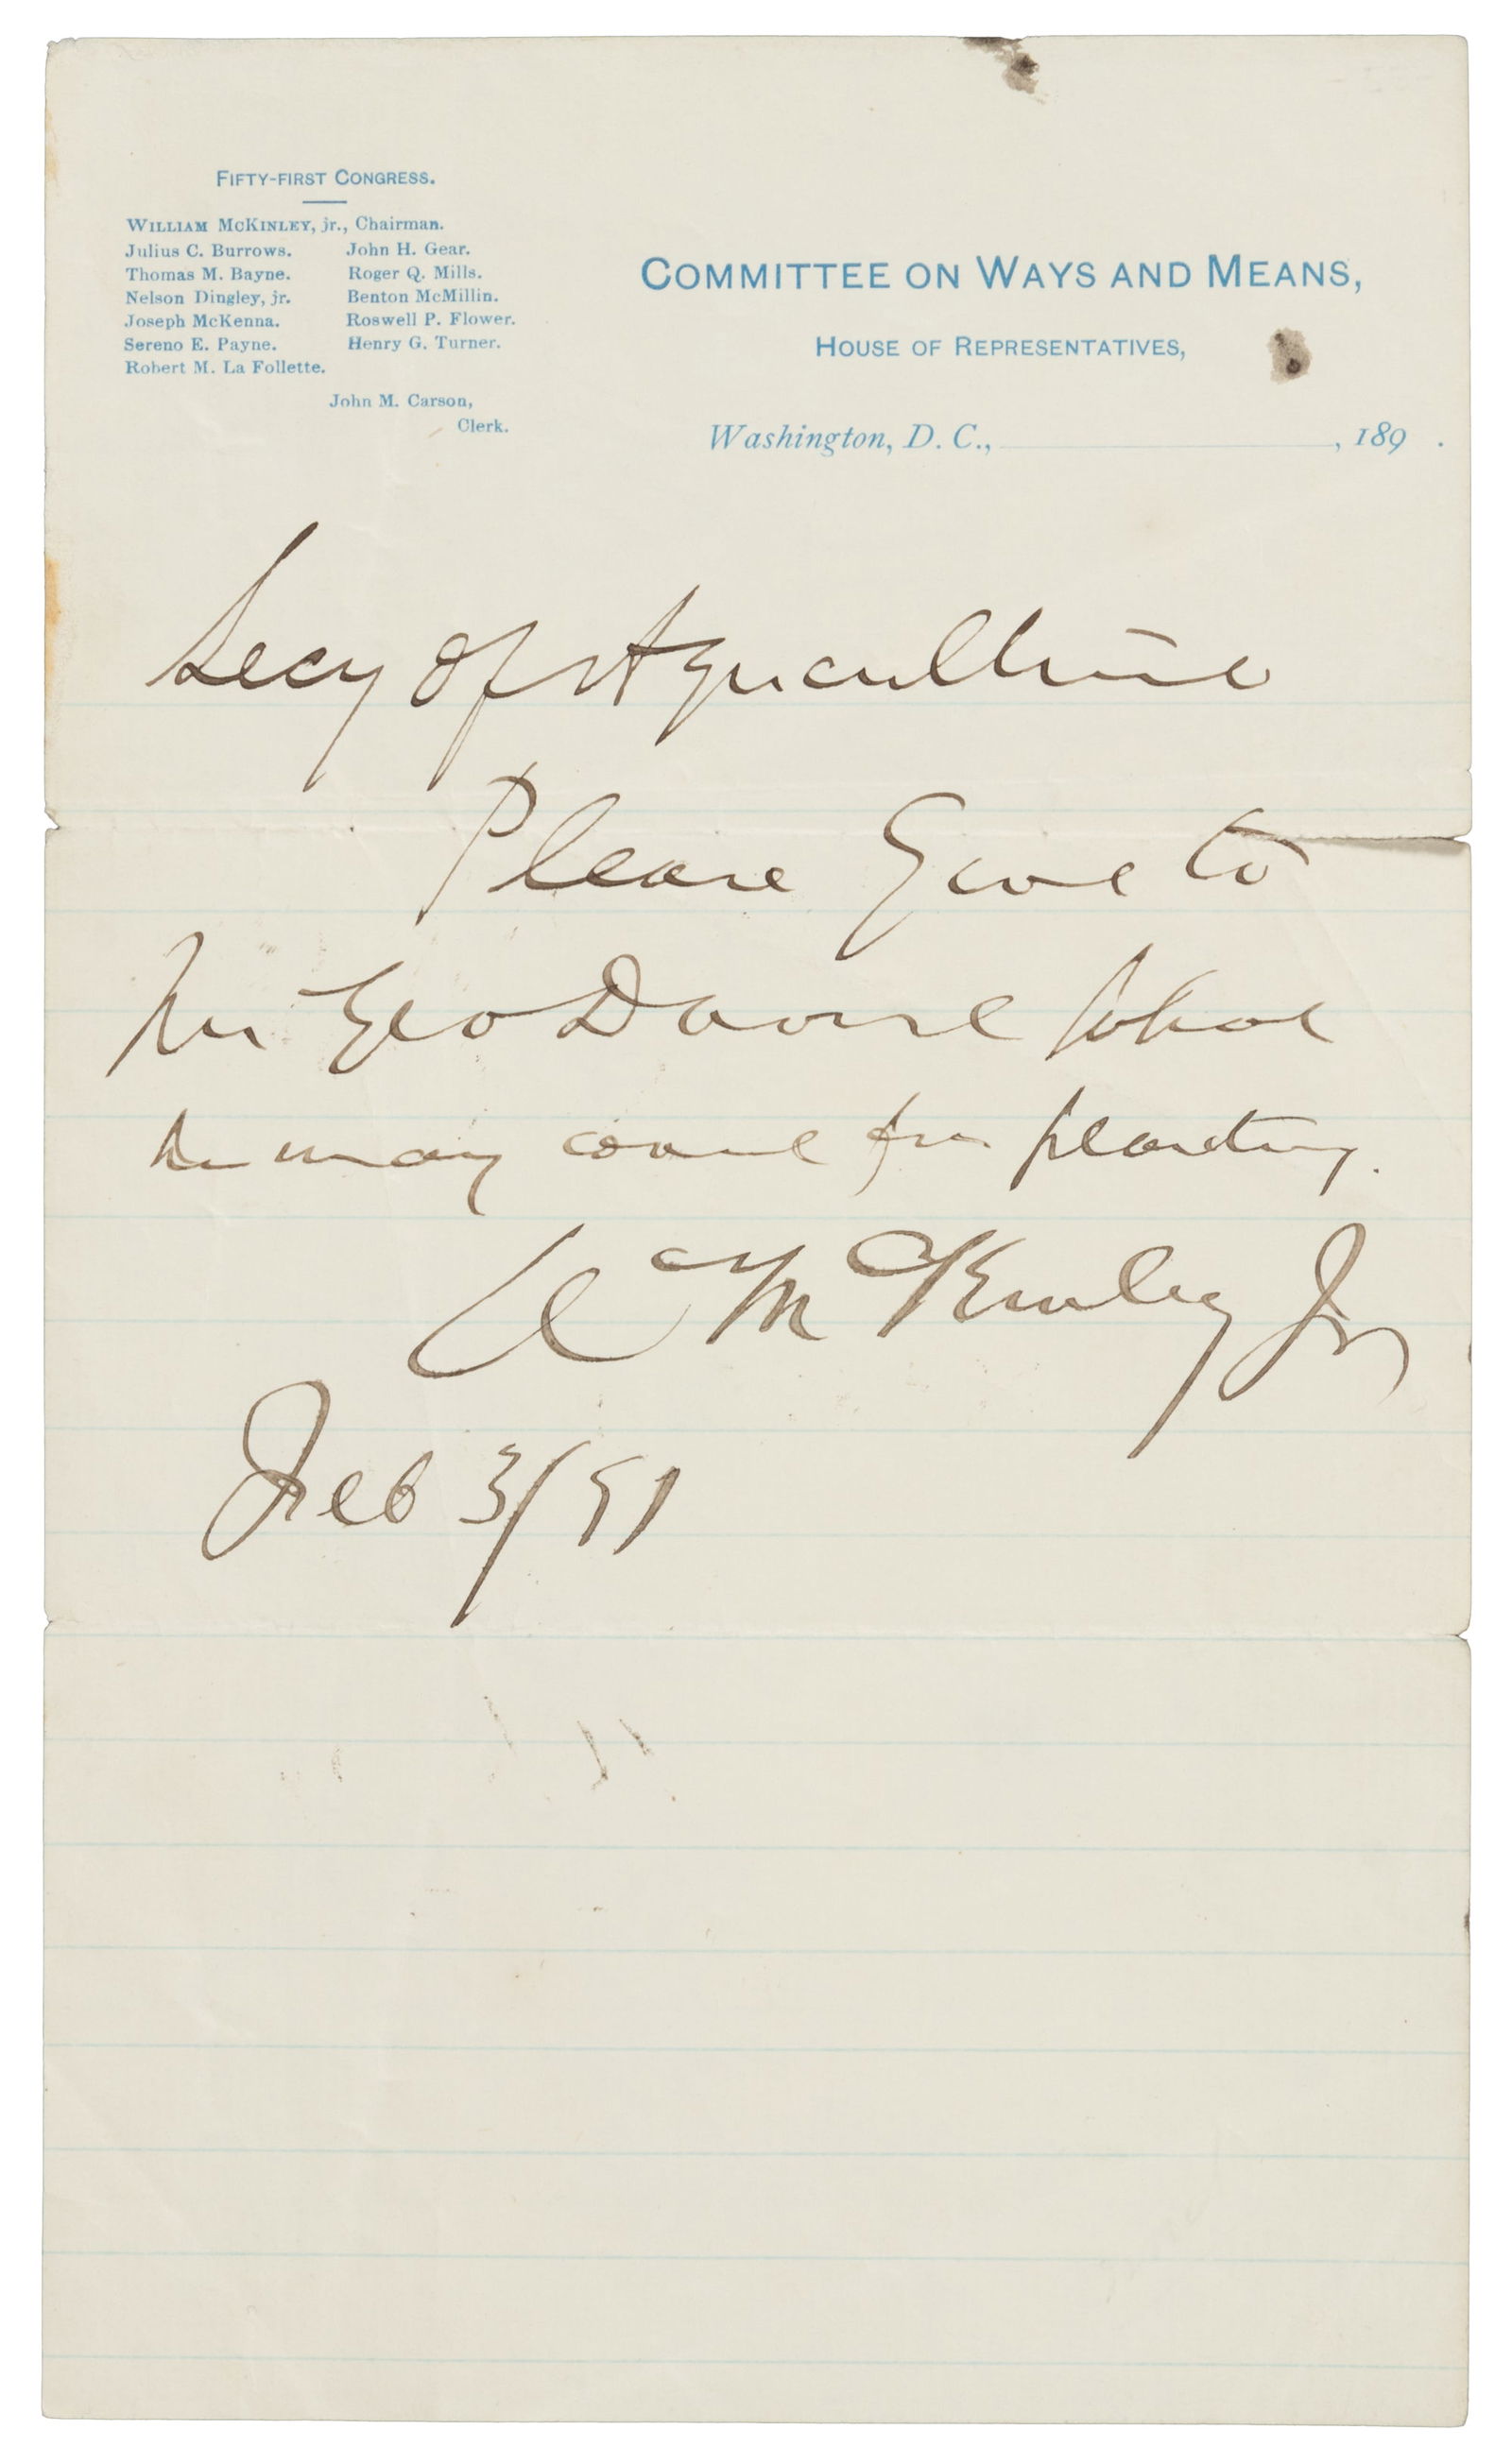 FIFTY-FIRST CONGRESS.
WILLIAM MCKINLEY, jr., Chairman.
Julius C. Burrows. John H. Gear.
Thomas M. Bayne. Roger Q. Mills.
Nelson Dingley, jr. Benton McMillin.
Joseph McKenna. Roswell P. Flower.
Sereno E. Payne. Henry G. Turner.
Robert M. La Follette.
John M. Carson,
Clerk.
COMMITTEE ON WAYS AND MEANS,
HOUSE OF REPRESENTATIVES,
Washington, D. C., , 189 .
Secy of Agriculture
Please Give to
Mr Geo what
he may want for planting.
Wm McKinley Jr
Feb 3/91